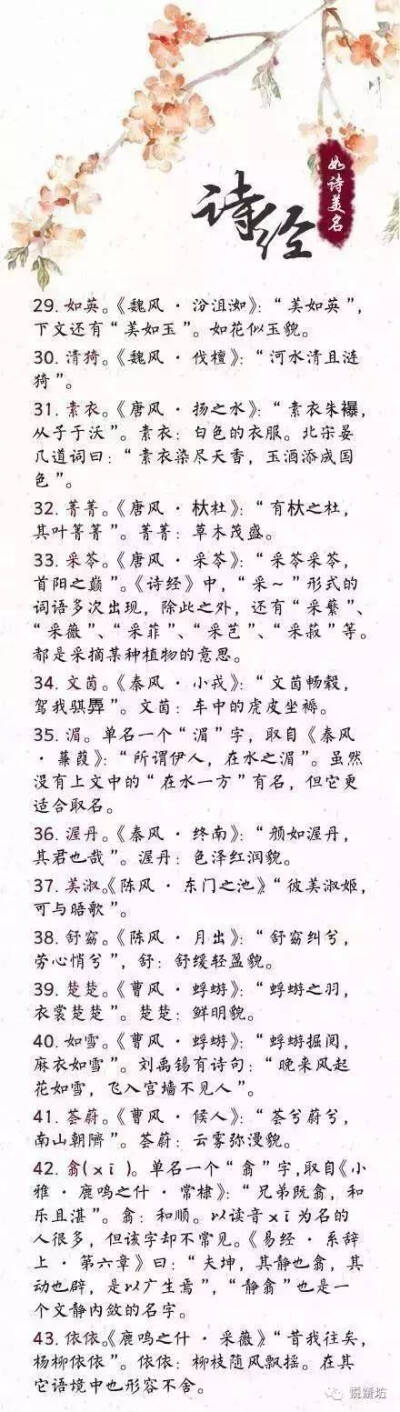 诗经
如诗美名
29. 如英。《魏风·汾沮洳》：“美如英”，
下文还有“美如玉”。如花似玉貌。
30. 清猗。《魏风·伐檀》：“河水清且涟
猗”。
31. 素衣。《唐风·扬之水》：“素衣朱襮，
从子于沃”。素衣：白色的衣服。北宋晏
几道词曰：“素衣染尽天香，玉酒添成国
色”。
32. 菁菁。《唐风·杕杜》：“有杕之杜，
其叶菁菁”。菁菁：草木茂盛。
33. 采苓。《唐风·采苓》：“采苓采苓，
首阳之巅”。《诗经》中，“采～”形式的
词语多次出现，除此之外，还有“采蘩”、
“采薇”、“采菲”、“采芑”、“采菽”等。
都是采摘某种植物的意思。
34. 文茵。《秦风·小戎》：“文茵畅毂，
驾我骐馵”。文茵：车中的虎皮坐褥。
35. 湄。单名一个“湄”字，取自《秦风
·蒹葭》：“所谓伊人，在水之湄”。虽然
没有上文中的“在水一方”有名，但它更
适合取名。
36. 渥丹。《秦风·终南》：“颜如渥丹，
其君也哉”。渥丹：色泽红润貌。
37. 美淑。《陈风·东门之池》“彼美淑姬，
可与晤歌”。
38. 舒窈。《陈风·月出》：“舒窈纠兮，
劳心悄兮”，舒：舒缓轻盈貌。
39. 楚楚。《曹风·蜉蝣》：“蜉蝣之羽，
衣裳楚楚”。楚楚：鲜明貌。
40. 如雪。《曹风·蜉蝣》：“蜉蝣掘阅，
麻衣如雪”。刘禹锡有诗句：“晚来风起
花如雪，飞入宫墙不见人”。
41. 荟蔚。《曹风·候人》：“荟兮蔚兮，
南山朝隮”。荟蔚：云雾弥漫貌。
42. 翕(xī)。单名一个“翕”字，取自《小
雅·鹿鸣之什·常棣》：“兄弟既翕，和
乐且湛”。翕：和顺。以读音xī为名的
人很多，但该字却不常见。《易经·系辞
上·第六章》曰：“夫坤，其静也翕，其
动也辟，是以广生焉”，“静翕”也是一
个文静内敛的名字。
43. 依依。《鹿鸣之什·采薇》“昔我往矣，
杨柳依依”。依依：柳枝随风飘摇。在其
它语境中也形容不舍。